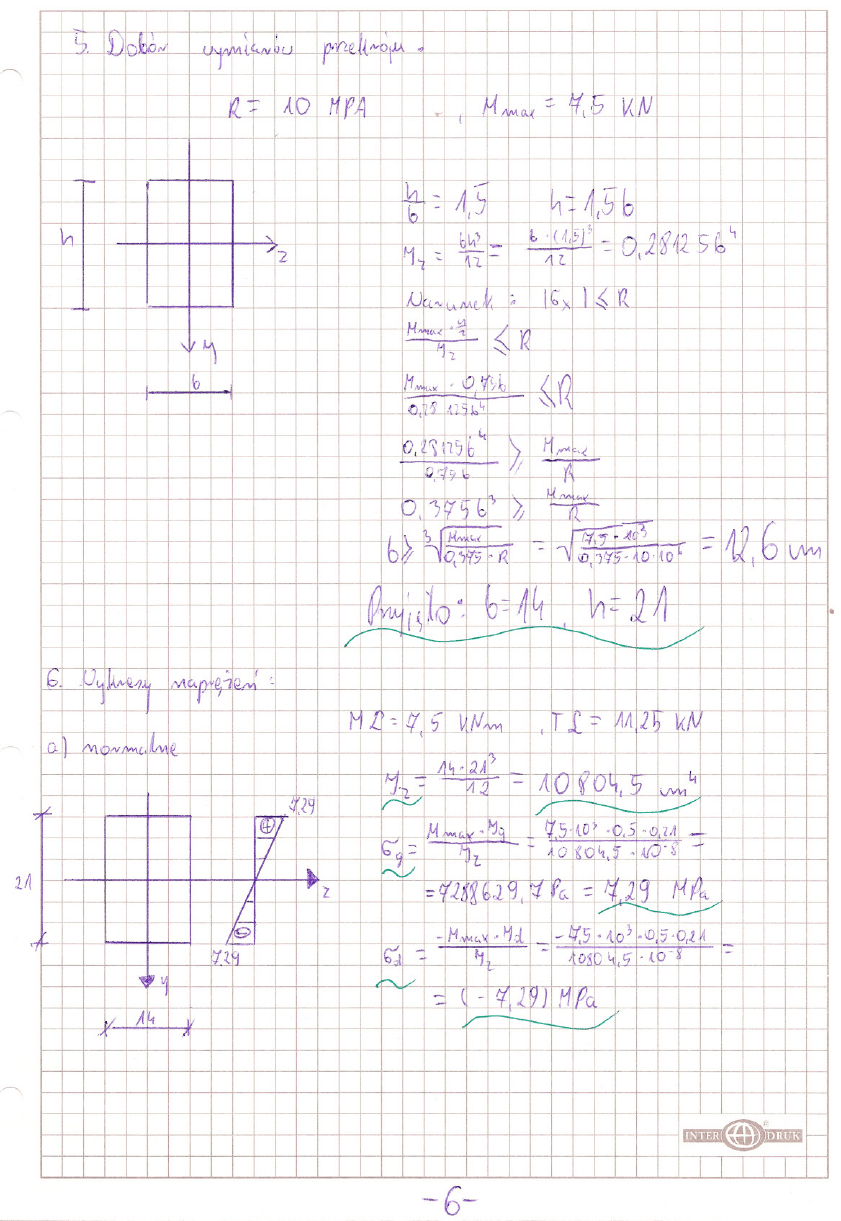 5. Dobór wymiarów przekroju.
R = 10 MPA , Mmax = 7,5 KN
h/b = 1,5 h = 1,5b
h
z
Jz = bh³/12 = b·(1,5)³/12 = 0,28125b⁴
Warunek : |6x| ≤ R
Mmax · h/2 / Jz ≤ R
y
b
Mmax · 0,75b / 0,28125b⁴ ≤ R
0,28125b⁴ / 0,75b ≥ Mmax / R
0,375b³ ≥ Mmax / R
b ≥ ³√(Mmax / 0,375·R) = √(7,5·10³ / 0,375·10·10⁶) = 12,6 cm
Przyjęto: b=14, h=21
6. Wykresy naprężeń:
ML = 7,5 KNm , TL = 11,25 KN
a) normalne
Jz = 14·21³/12 = 10804,5 cm⁴
7,29
+
σg = Mmax · yg / Jz = 7,5·10³·0,5·0,21 / 10804,5·10⁻⁸ =
21
z
= 7288629,7 Pa = 7,29 MPa
-
7,29
σd = -Mmax · yd / Jz = -7,5·10³·0,5·0,21 / 10804,5·10⁻⁸ =
y
= (-7,29) MPa
14
INTER DRUK
-6-